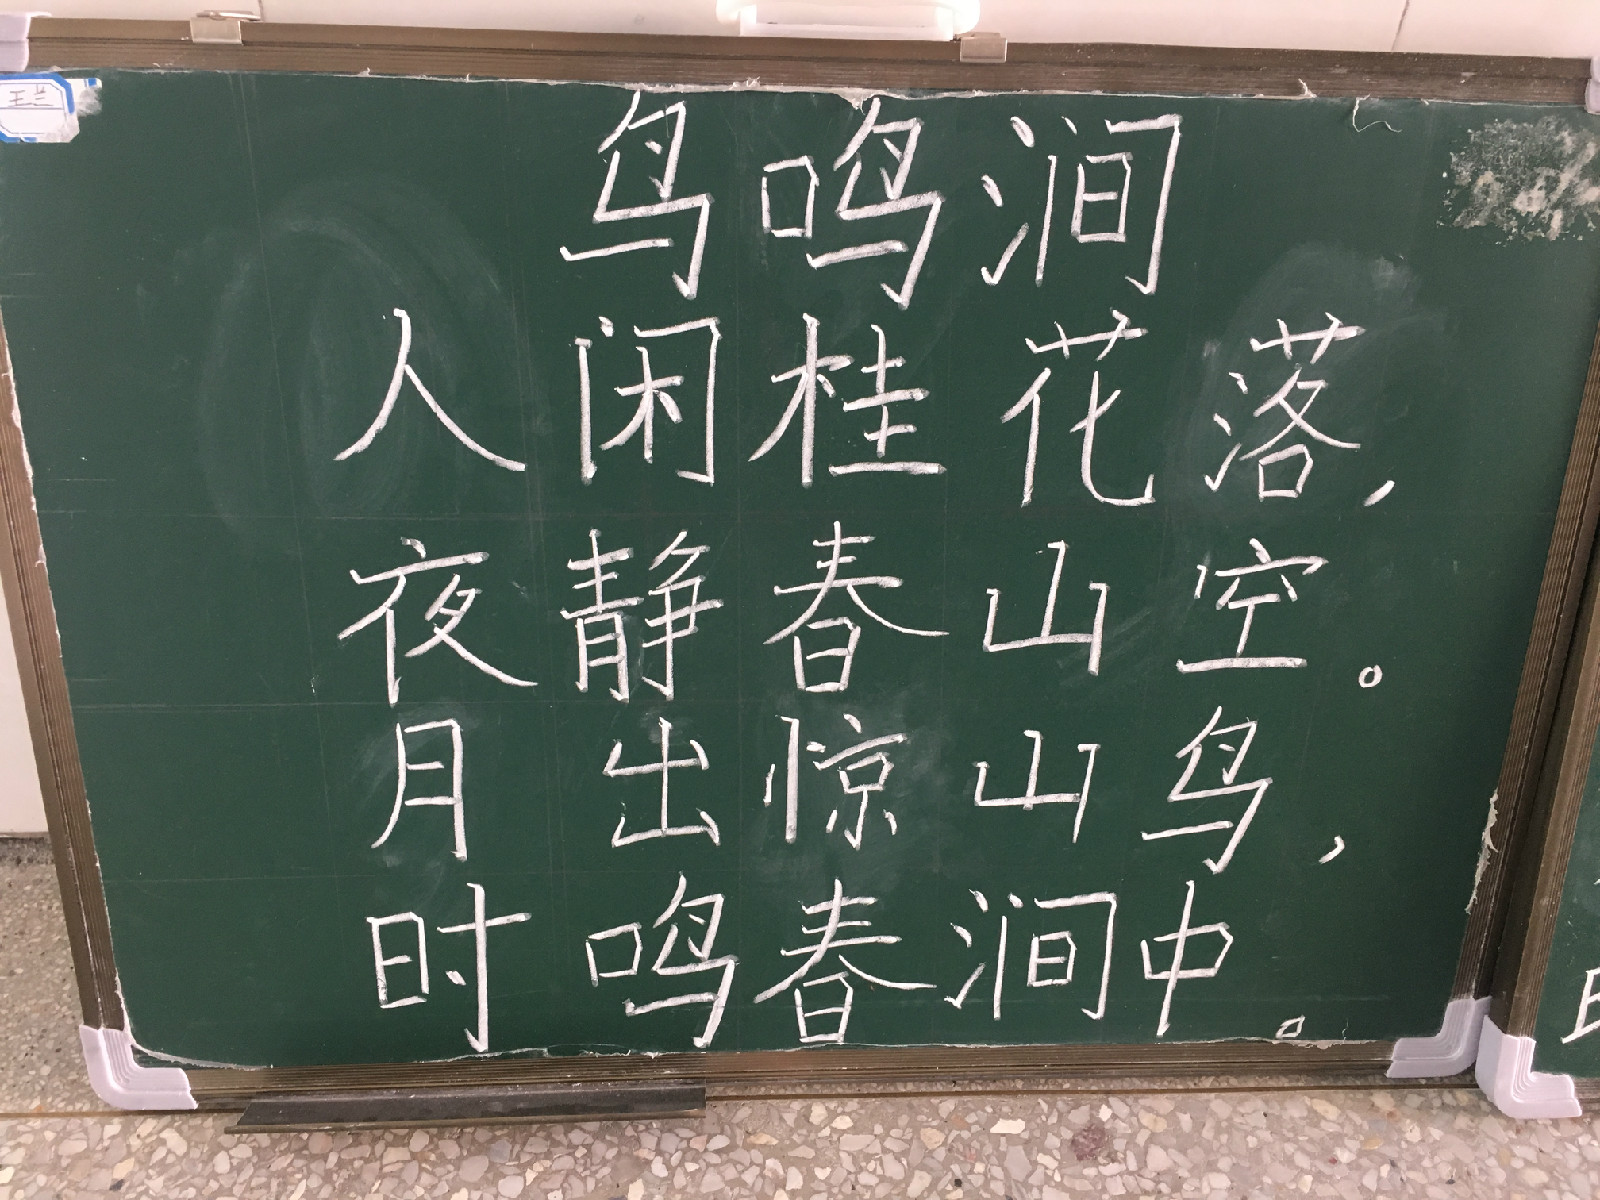 王兰
鸟鸣涧
人闲桂花落，
夜静春山空。
月出惊山鸟，
时鸣春涧中。